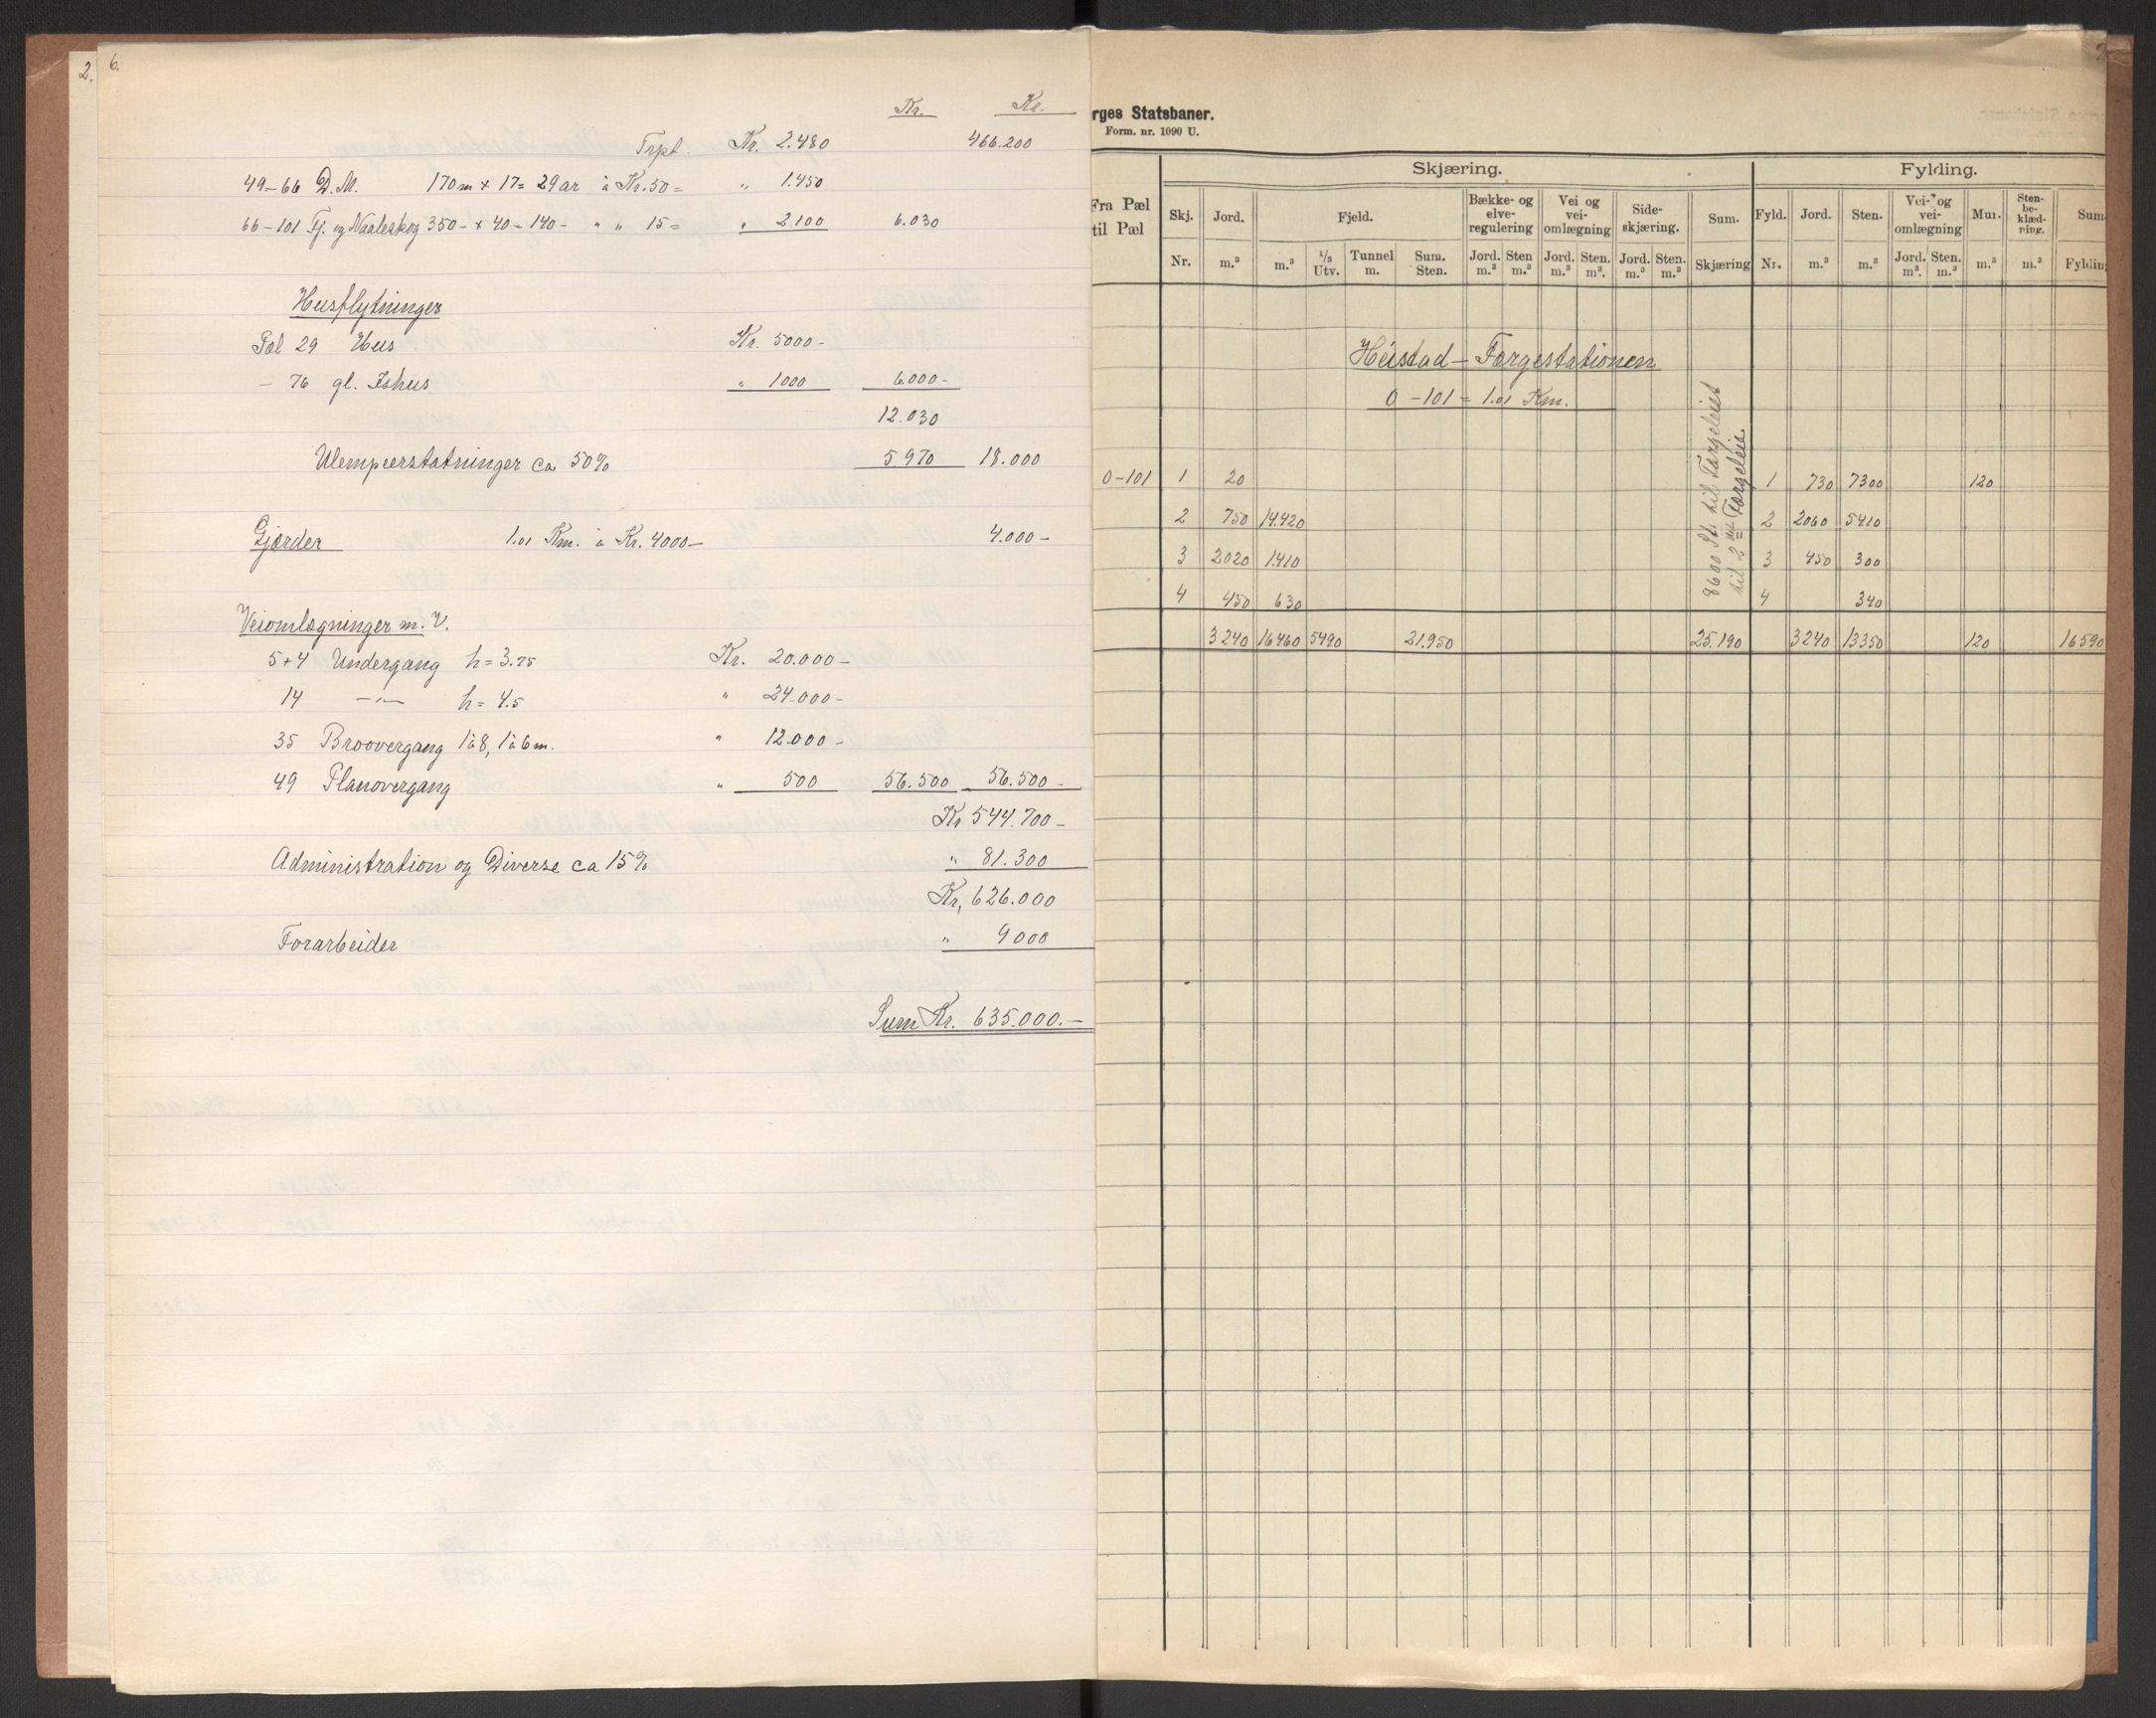 2.
6.
Kr. Kr.
Trpt. Kr. 2.480 466.200
49-66 D.M. 170m x 17 = 29 ar à Kr. 50 = " 1.450
66-101 Fj. og Naaleskog 350 - x 40 - 140 - " " 15 = " 2100 6.030
Husflytninger
Pæl 29 Hus Kr. 5000 -
- 76 gl. Ishus " 1000 6.000 -
12.030
Ulempeerstatninger ca 50% 5.970 18.000
Gjærder 1.01 Km. à Kr. 4000 - 4.000 -
Veiomlægninger m. V.
5+4 Undergang h = 3.75 Kr. 20.000 -
14 -"- h = 4.5 " 24.000 -
35 Broovergang 1à8, 1à6 m. " 12.000 -
49 Planovergang " 500 56.500 56.500 -
Kr 544.700 -
Administration og Diverse ca 15% " 81.300
Kr. 626.000
Forarbeider " 9000
Sum Kr. 635.000. -
rges Statsbaner.
Form. nr. 1090 U.
Skjæring. Fylding.
Fra Pæl til Pæl Skj. Jord. Fjeld. Bække- og elve- regulering Vei og vei- omlægning Side- skjæring. Sum. Fyld. Jord. Sten. Vei- og vei- omlægning Mur. Sten- be- klæd- ning. Sum
Nr. m.³ m.³ 1/3 Utv. Tunnel m. Sum. Sten. Jord. m.³ Sten m.³ Jord. m.³ Sten. m³. Jord. m.³ Sten. m.³ Skjæring Nr. m.³ m.³ Jord. m³. Sten. m.³ m.³ m.³ Fylding
Heistad - Færgestationen
0 - 101 = 1.01 Km.
8600 St. til Færgeleiet
til 2 det Færgeleie.
0-101 1 20 1 730 7300 120
2 750 14.420 2 2060 5410
3 2020 1.410 3 450 300
4 450 630 4 340
3240 16460 5490 21.950 25.190 3240 13350 120 16590